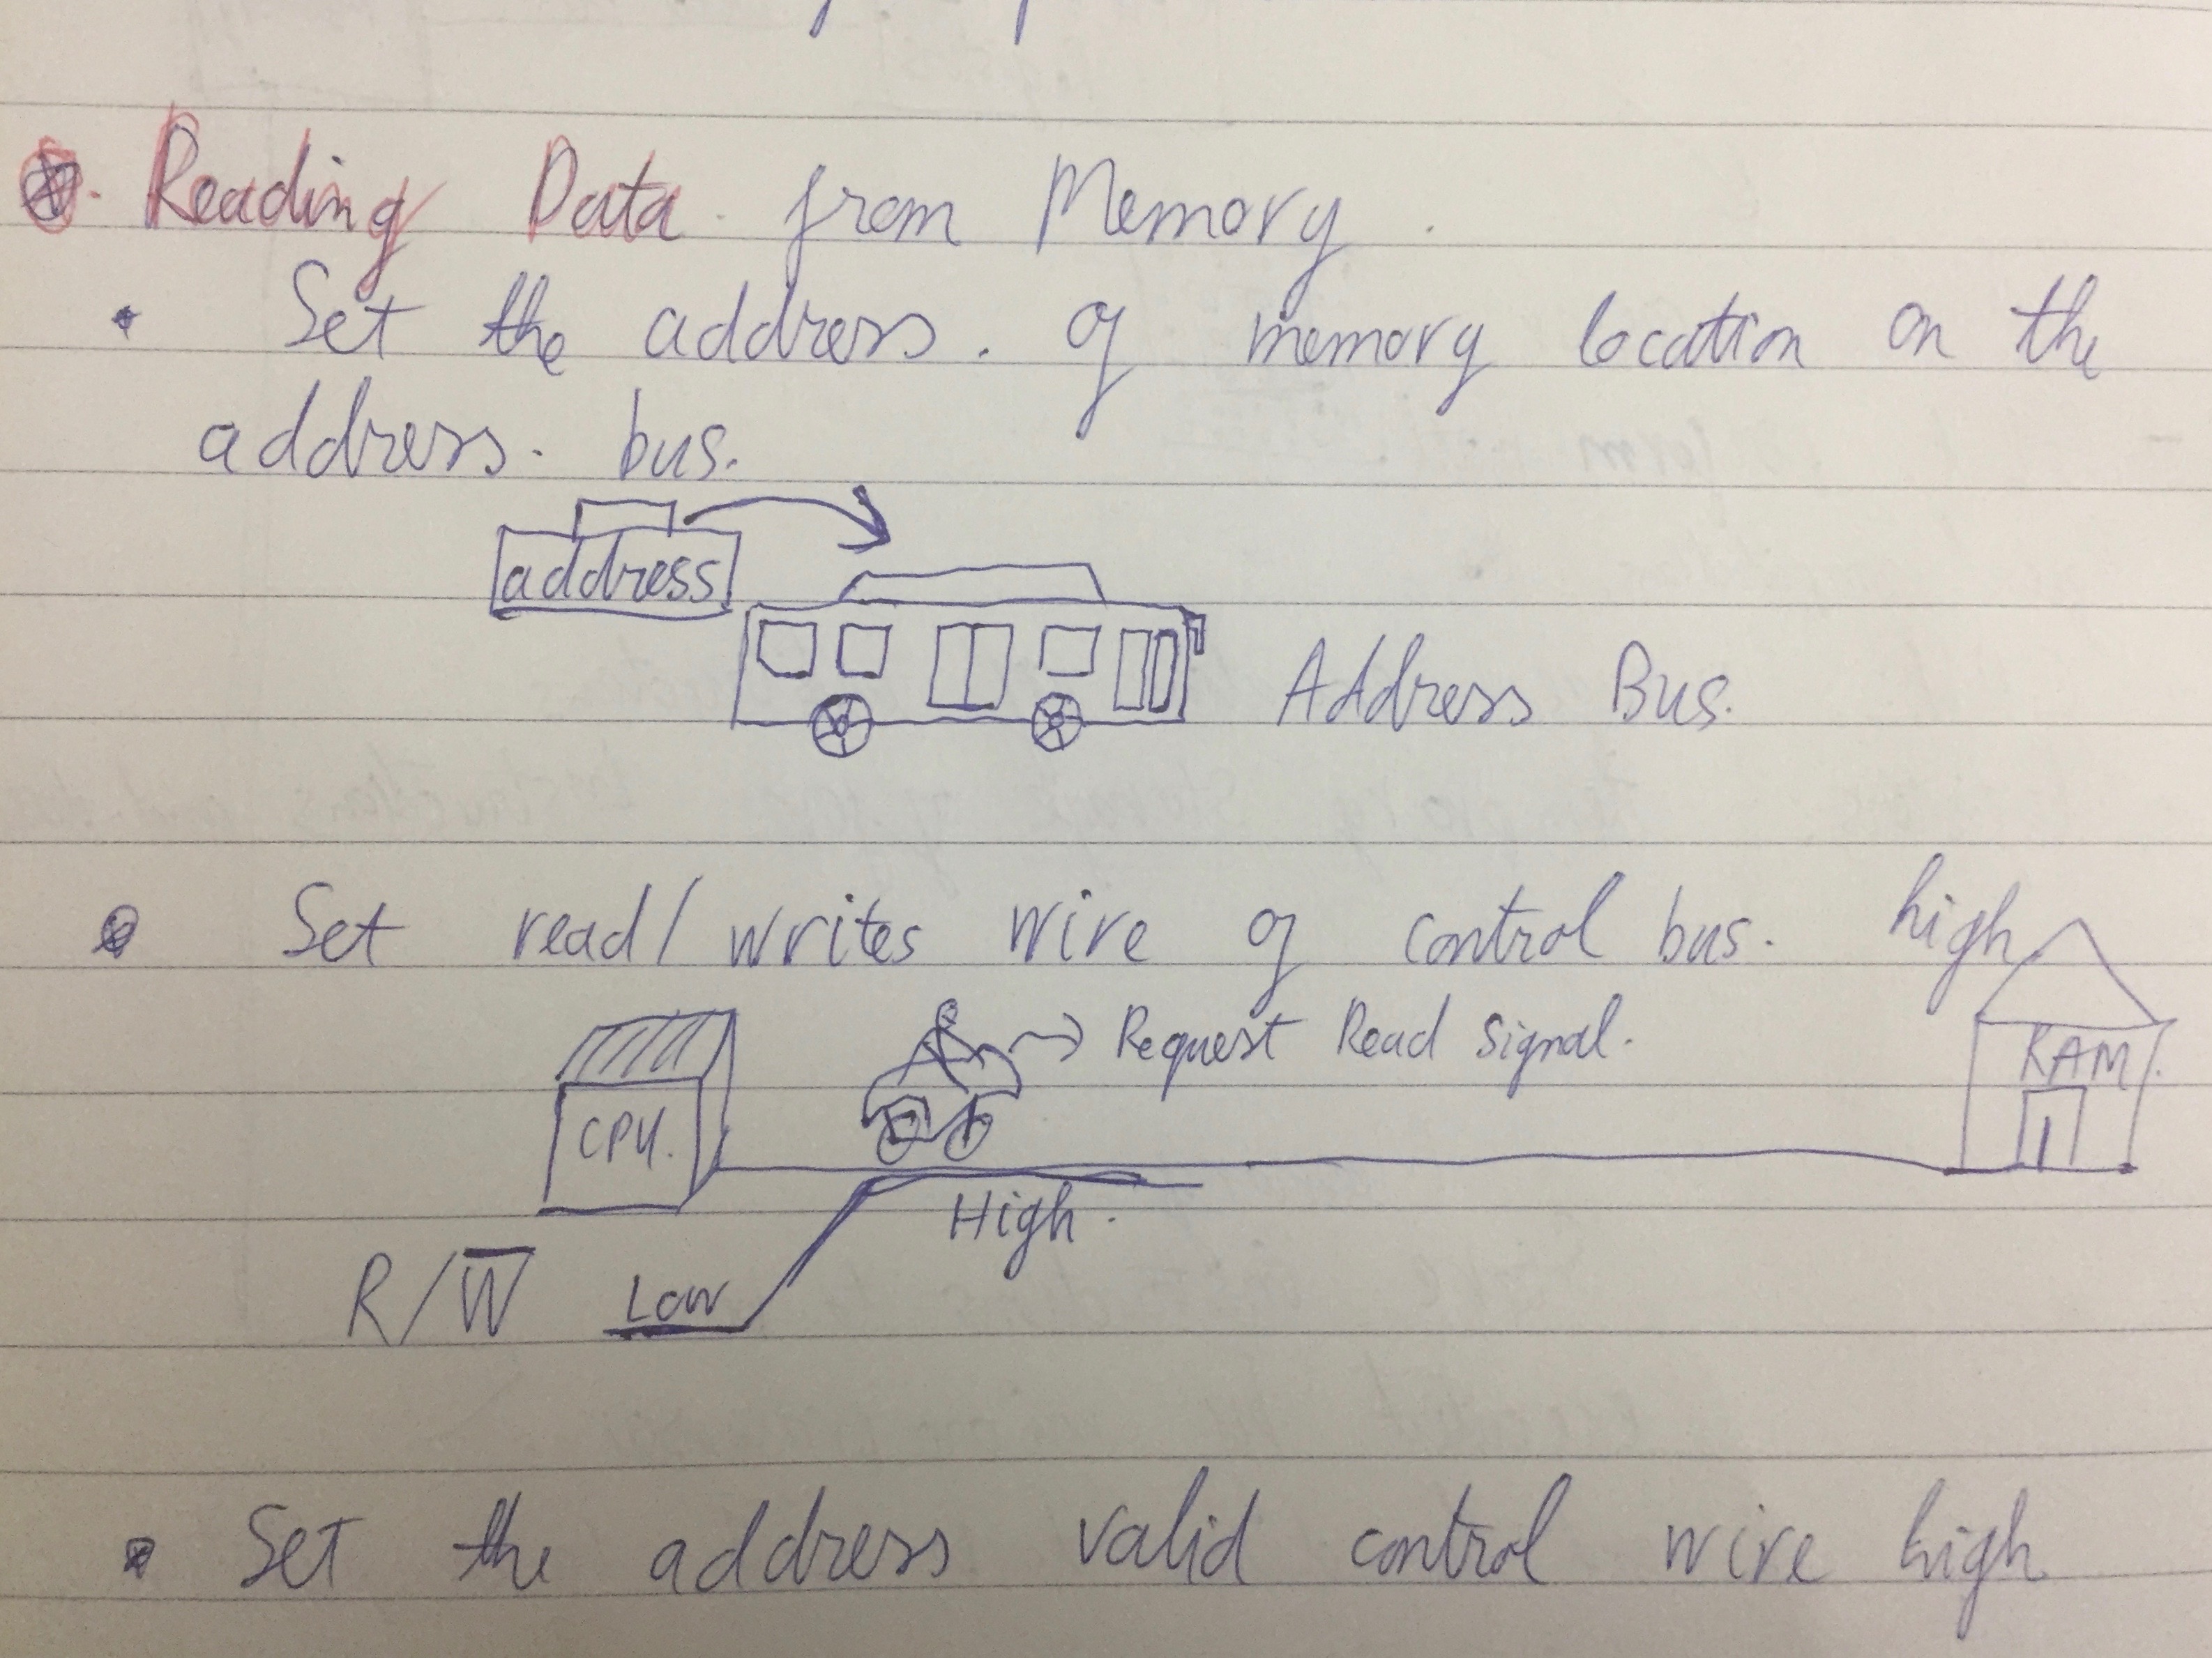 Reading Data from Memory.
• Set the address. of memory location on the
address. bus.
address
Address Bus.
• Set read/writes wire of control bus. high
→ Request Read Signal.
RAM
CPU.
High.
R/W̅ Low
• Set the address valid control wire high